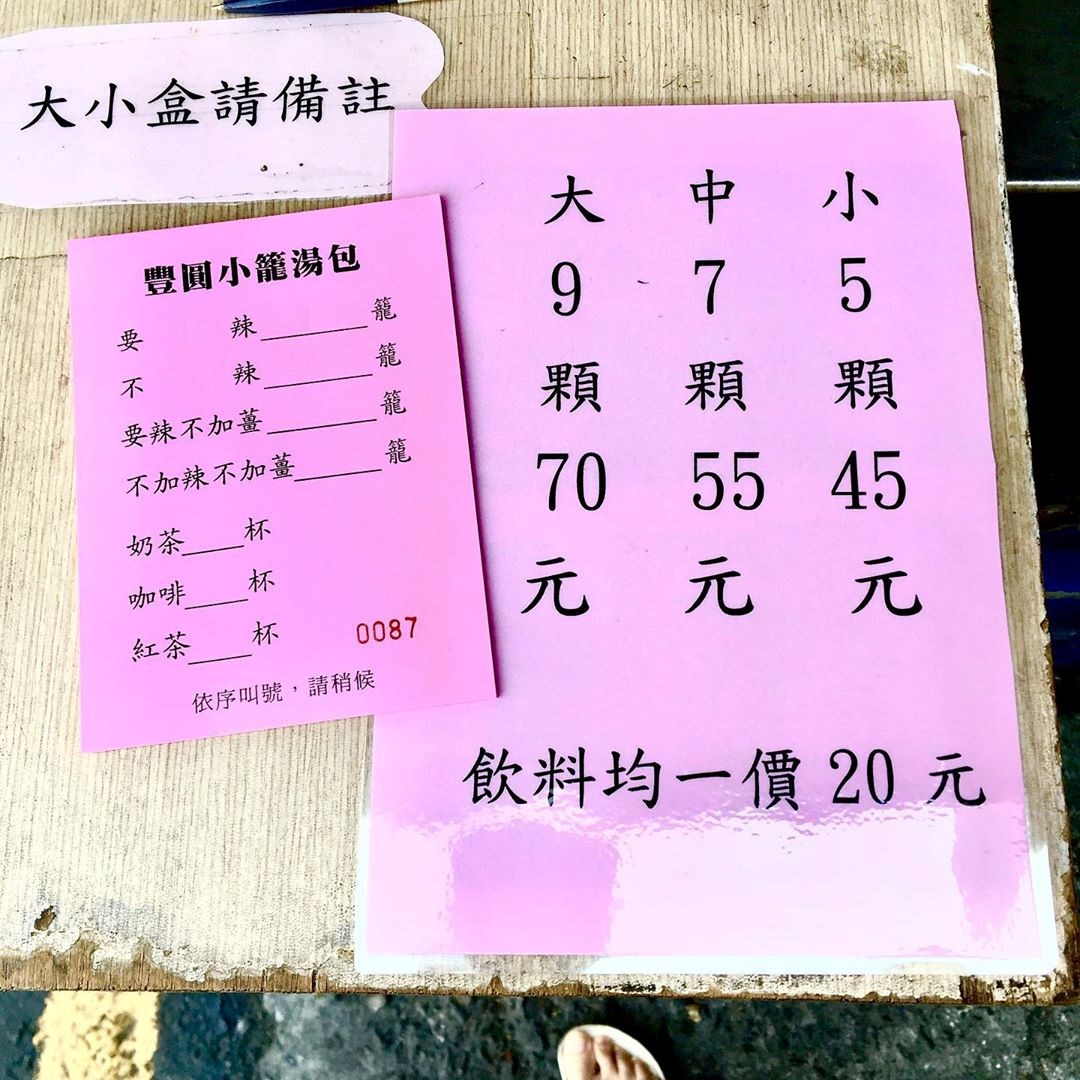 大小盒請備註
豐圓小籠湯包
要 辣______籠
不 辣______籠
要辣不加薑______籠
不加辣不加薑______籠
奶茶____杯
咖啡____杯
紅茶____杯
0087
依序叫號，請稍候
大 中 小
9 7 5
顆 顆 顆
70 55 45
元 元 元
飲料均一價 20 元